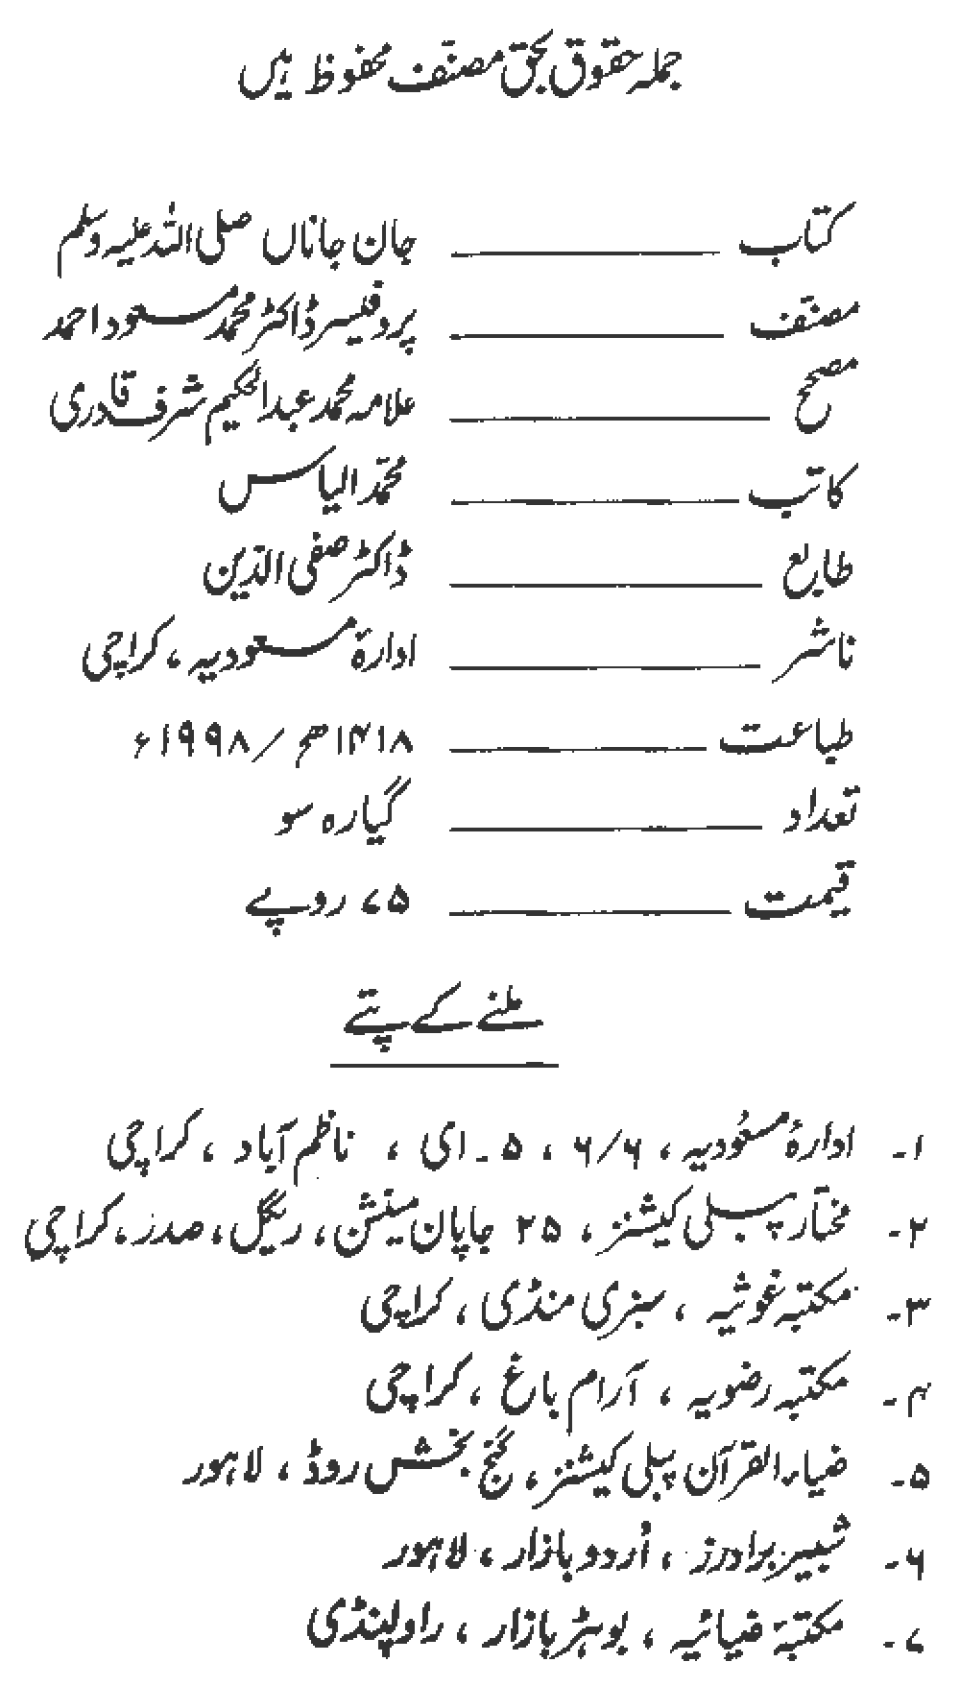 جملہ حقوق بحق مصنّف محفوظ ہیں
کتاب ـــــــــ جان جاناں صلی اللہ علیہ وسلم
مصنّف ـــــــــ پروفیسر ڈاکٹر محمّد مسعود احمد
مصحح ـــــــــ علامہ محمد عبدالحکیم شرف قادری
کاتب ـــــــــ محمّد الیاس
طابع ـــــــــ ڈاکٹر صفی الدّین
ناشر ـــــــــ ادارۂ مسعودیہ ، کراچی
طباعت ـــــــــ ۱۴۱۸ھ / ۱۹۹۸ء
تعداد ـــــــــ گیارہ سو
قیمت ـــــــــ ۷۵ روپے
ملنے کے پتے
۱۔ ادارۂ مسعُودیہ ، ۶/۶ ، ۵۔ ای ، ناظم آباد ، کراچی
۲۔ مختار پبلی کیشنز ، ۲۵ جاپان مینشن ، ریگل ، صدر ، کراچی
۳۔ مکتبہ غوثیہ ، سبزی منڈی ، کراچی
۴۔ مکتبہ رضویہ ، آرام باغ ، کراچی
۵۔ ضیاء القرآن پبلی کیشنز ، گنج بخش روڈ ، لاہور
۶۔ شبیر برادرز ، اُردو بازار ، لاہور
۷۔ مکتبۂ ضیائیہ ، بوہڑ بازار ، راولپنڈی